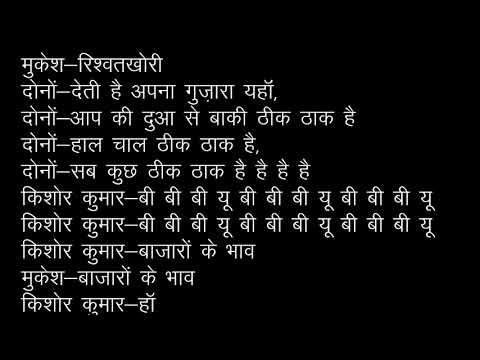 मुकेश–रिश्वतखोरी
दोनों–देती है अपना गुज़ारा यहॉ,
दोनों–आप की दुआ से बाकी ठीक ठाक है
दोनों–हाल चाल ठीक ठाक है,
दोनों–सब कुछ ठीक ठाक है है है है
किशोर कुमार–बी बी बी यू बी बी बी यू बी बी बी यू
किशोर कुमार–बी बी बी यू बी बी बी यू बी बी बी यू
किशोर कुमार–बाजारों के भाव
मुकेश–बाजारों के भाव
किशोर कुमार–हॉ